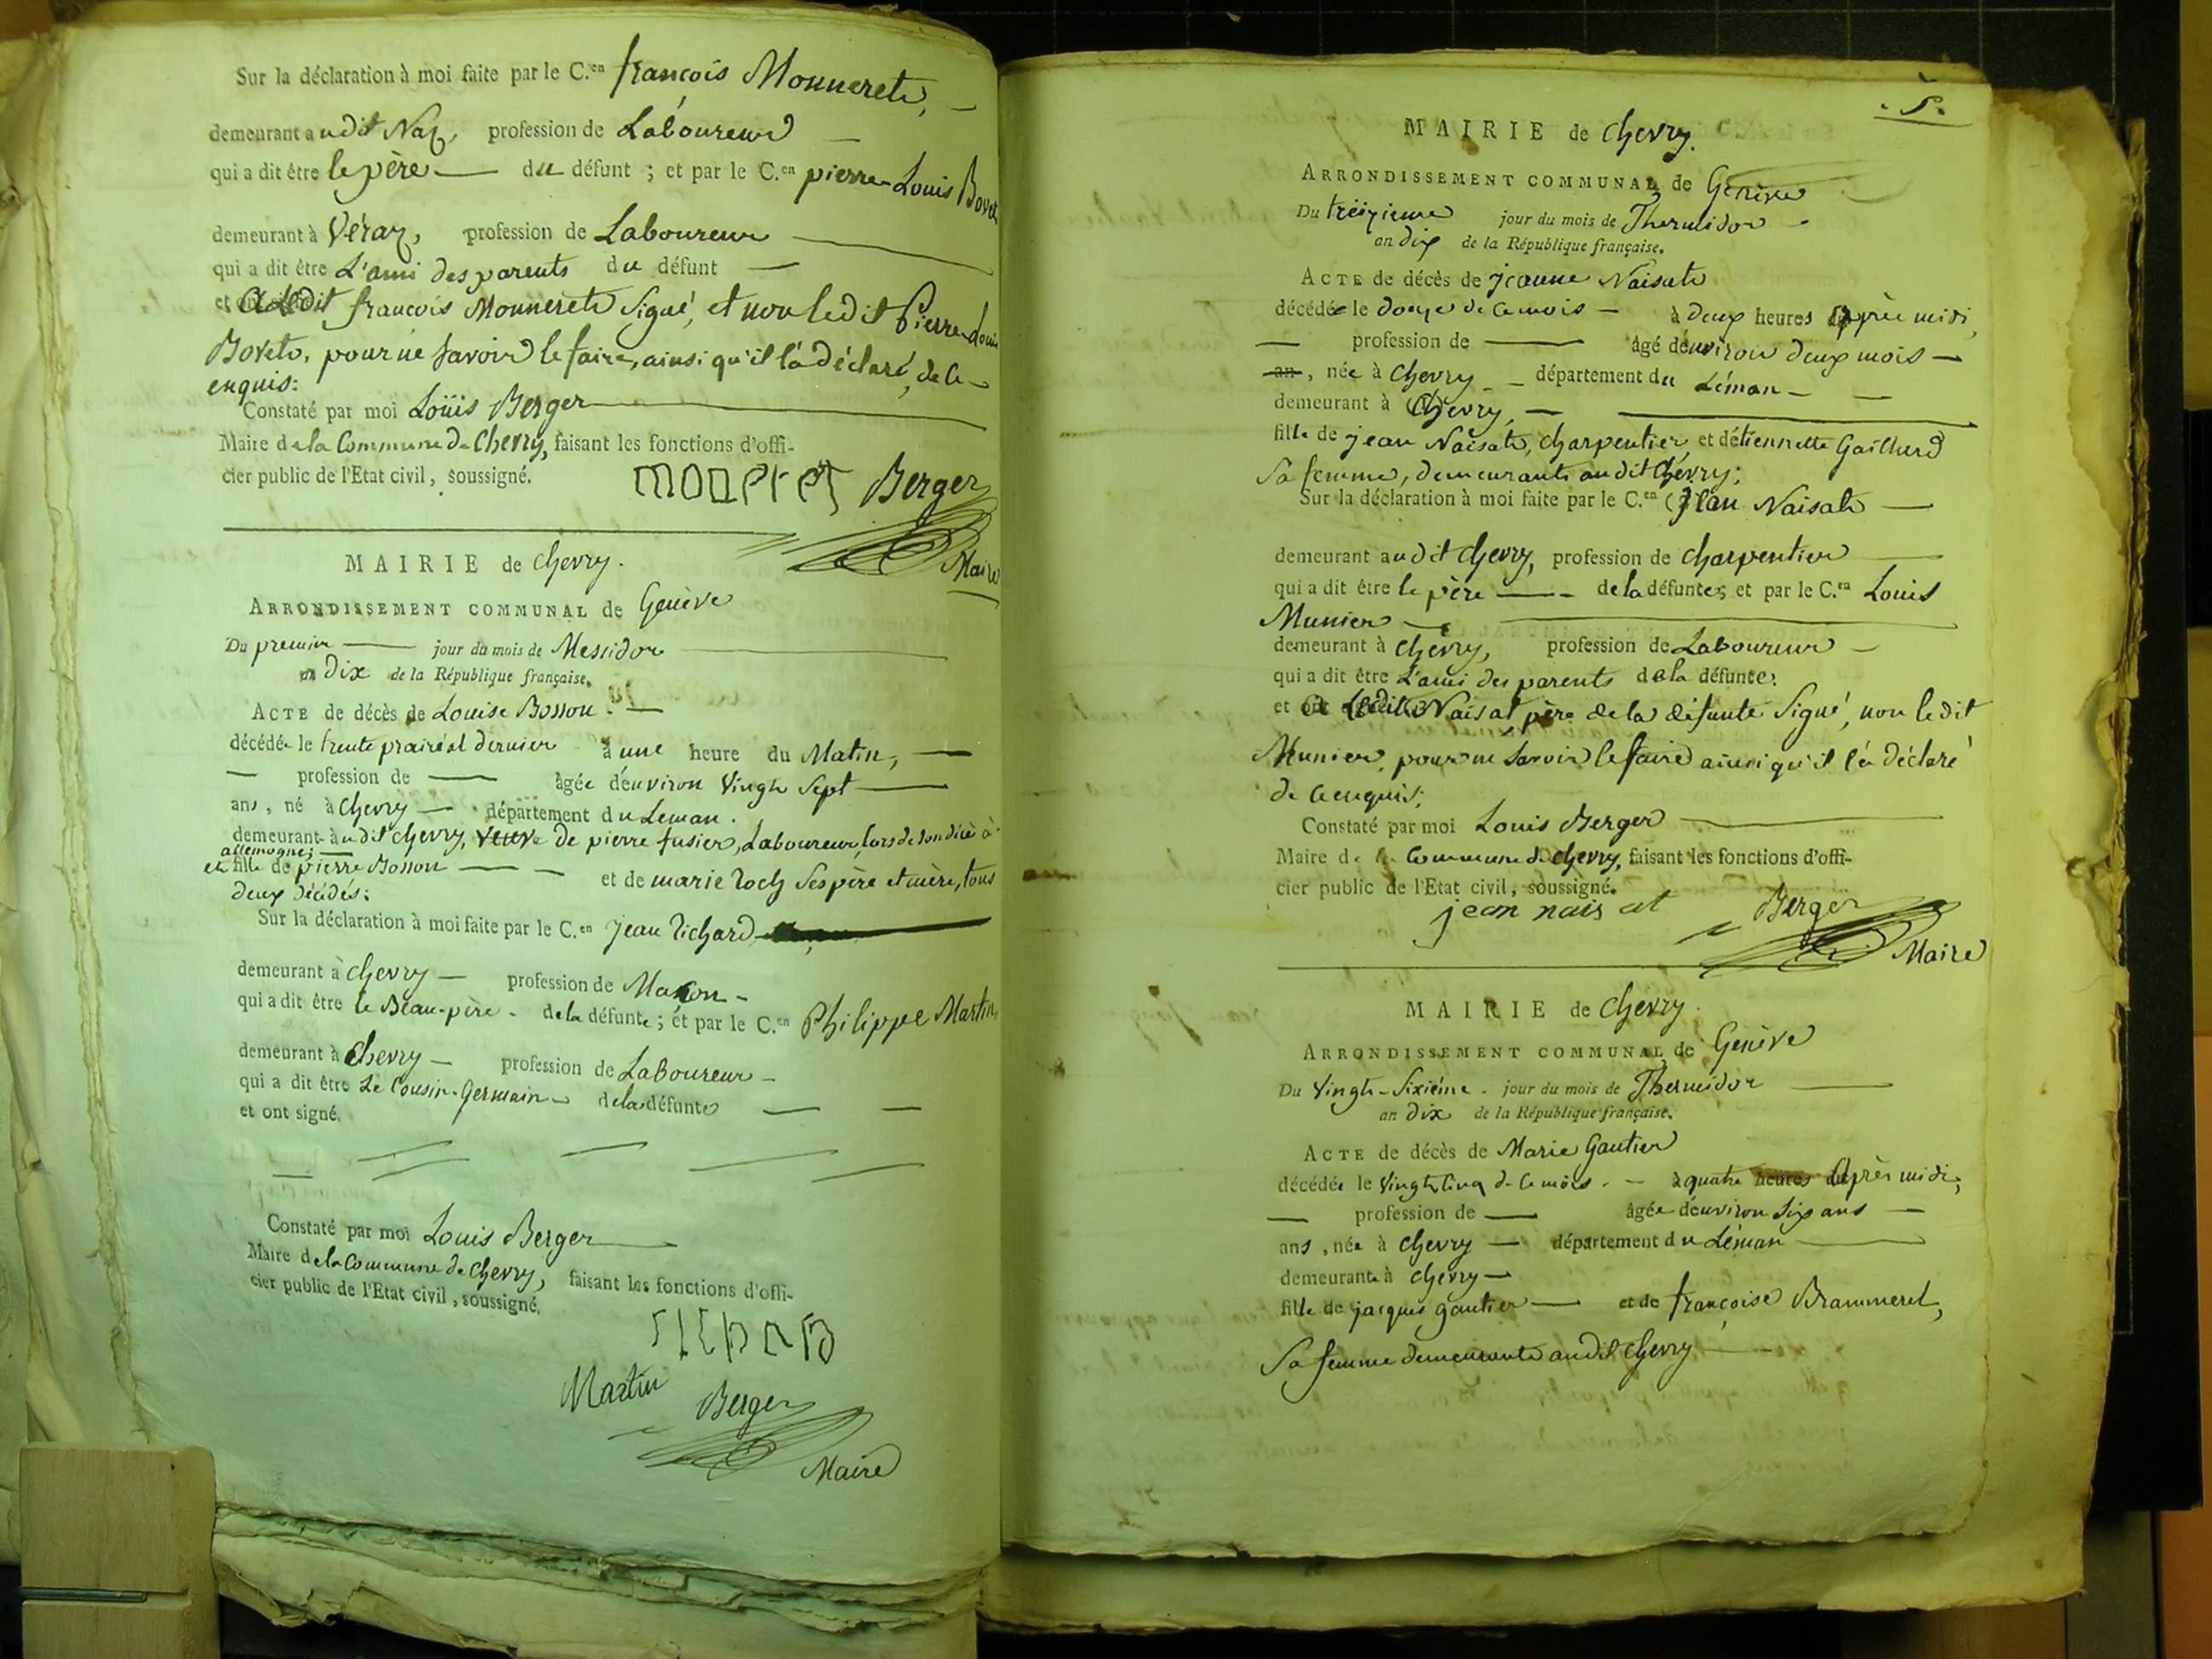 Sur la déclaration à moi faite par le C.en françois Monneret, —
demeurant audit Naz, profession de Laboureur —
qui a dit être le père — du défunt ; et par le C.en pierre-Louis Bovet
demeurant à Véraz, profession de Laboureur —
qui a dit être L'ami des parents du défunt —
et a Ledit françois Monneret Signé, et non ledit Pierre Louis
Bovet, pour ne savoir le faire, ainsi qu'il l'a déclaré, de ce
enquis:
Constaté par moi Loüis Berger —
Maire de la Commune de Chevry, faisant les fonctions d'offi-
cier public de l'Etat civil, soussigné.
moneret Berger
Maire
MAIRIE de Chevry.
ARRONDISSEMENT COMMUNAL de Genève
Du premier — jour du mois de Messidor —
an Dix de la République française.
ACTE de décès de Louise Bosson. —
décédée le trente prairéal dernier à une heure du Matin, —
— profession de — âgée d'environ Vingt Sept —
ans, né à Chevry — département du Leman.
demeurant audit Chevry, veuve De pierre fusier, Laboureur, lors de son décès à
allemogne; —
et fille de pierre Bosson — — et de marie Roch Ses père et mère, tous
deux décédés:
Sur la déclaration à moi faite par le C.en Jean Richard
demeurant à Chevry — profession de Maçon —
qui a dit être le Beau-père - de la défunte ; et par le C.en Philippe Martin
demeurant à Chevry — profession de Laboureur —
qui a dit être Le Cousin-Germain — de la défunte — —
et ont signé.
Constaté par moi Louis Berger —
Maire de la Commune de Chevry, faisant les fonctions d'offi-
cier public de l'Etat civil, soussigné.
Martin Berger
Maire
. 5.
MAIRIE de Chevry.
ARRONDISSEMENT COMMUNAL de Genève
Du treizieme jour du mois de Thermidor -
an dix de la République française.
ACTE de décès de jeanne Naisat
décédée le douze de ce mois — à deux heures après midi,
— profession de — âgé d'environ deux mois —
an, née à Chevry - — département du Léman — —
demeurant à Chevry, — —
fille de jean Naisat, charpentier, et d'étiennette Gaillard
Sa femme, demeurants audit Chevry;
Sur la déclaration à moi faite par le C.en Jean Naisat —
demeurant audit Chevry, profession de charpentier —
qui a dit être le père — de la défunte; et par le C.en Louis
Munier — —
demeurant à Chevry, profession de Laboureur —
qui a dit être L'ami des parents de la défunte:
et a Ledit Naisat père de la défunte Signé, non le dit
Munier, pour ne savoir le faire ainsi qu'il l'a déclaré
de ce enquis;
Constaté par moi Louis Berger —
Maire de la Commune de Chevry, faisant les fonctions d'offi-
cier public de l'Etat civil, soussigné.
jean nais at Berger
Maire
MAIRIE de Chevry.
ARRONDISSEMENT COMMUNAL de Genève
Du Vingt-Sixiéme - jour du mois de Thermidor —
an Dix de la République française.
ACTE de décès de Marie Gautier
décédée le Vingt Cinq de ce mois - — à quatre heures Après midi,
— profession de — âgée d'environ Six ans —
ans, née à Chevry — département du Léman —
demeurante à Chevry —
fille de jacques gautier — et de françoise Brammerel,
Sa femme demeurante audit Chevry —